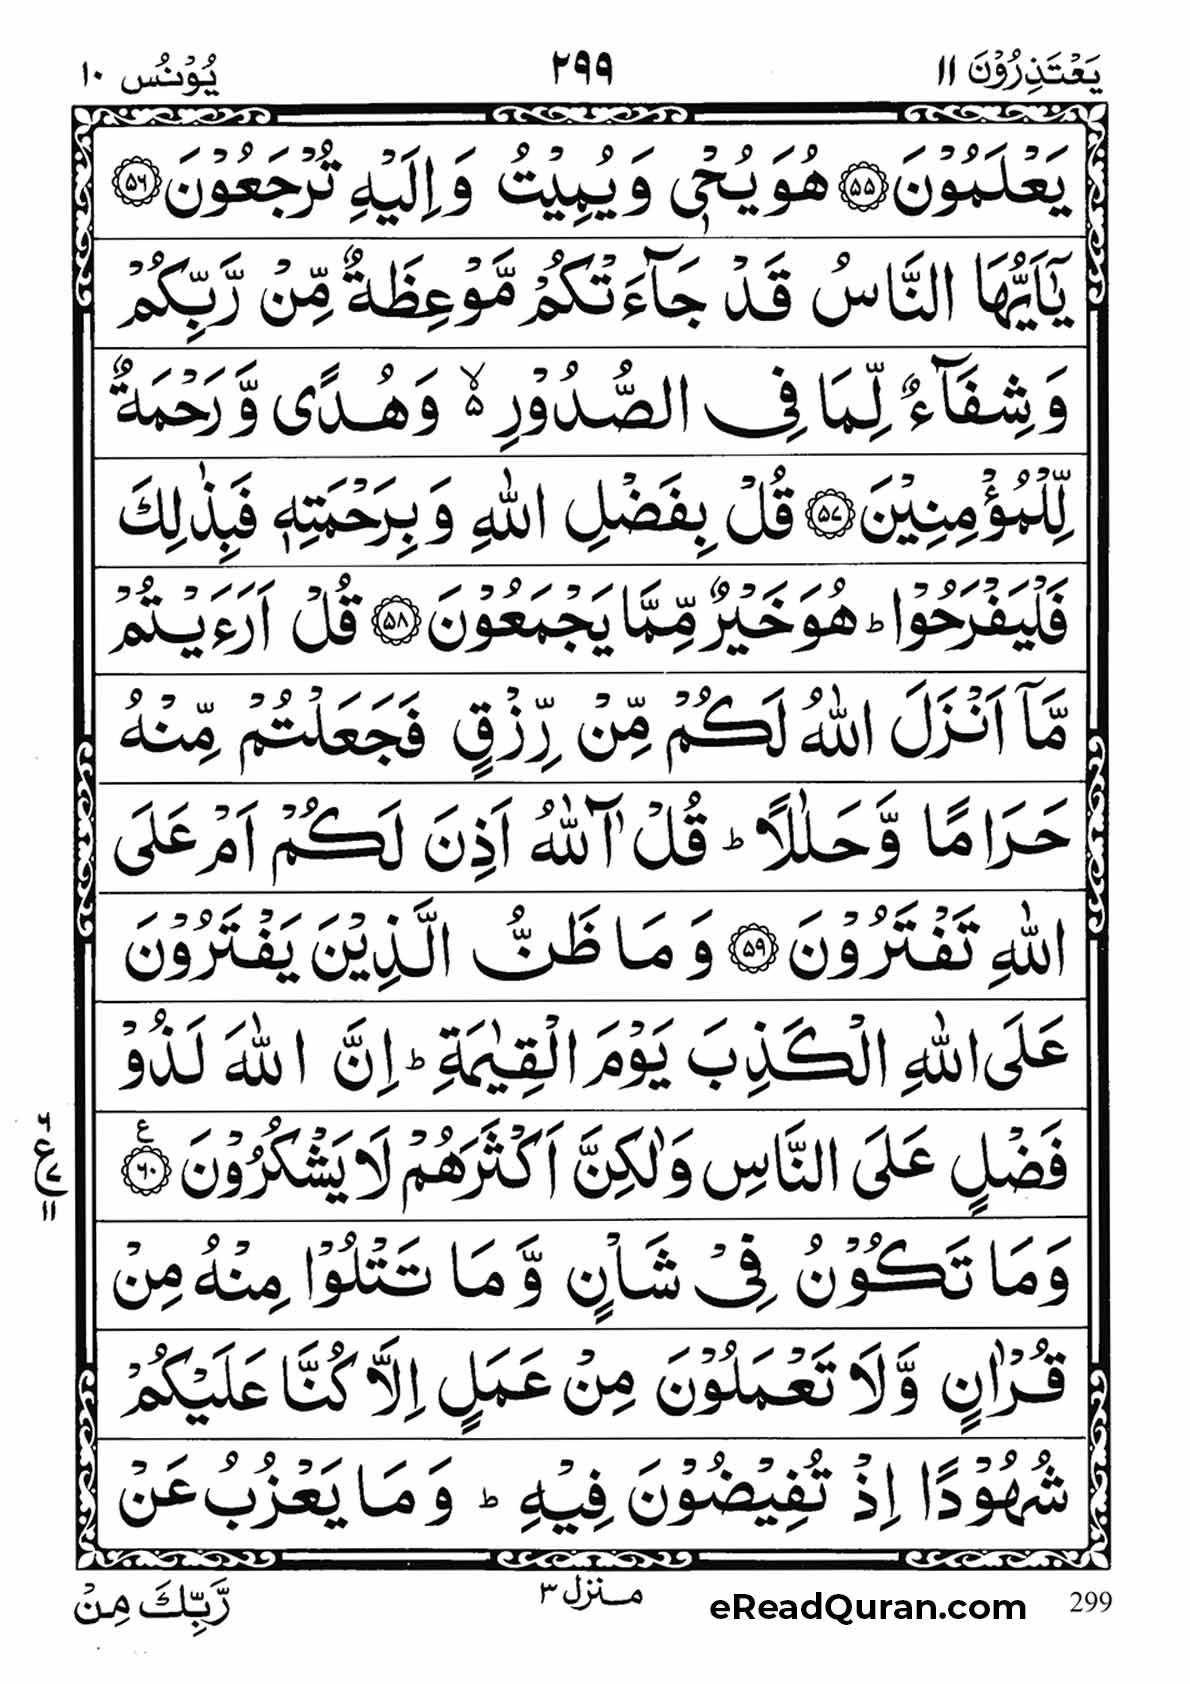 يَعْتَذِرُوْنَ ١١ ٢٩٩ يُوْنُس ١٠
يَعْلَمُوْنَ ﴿۵۵﴾ هُوَ يُحْيٖ وَيُمِيْتُ وَاِلَيْهِ تُرْجَعُوْنَ ﴿۵۶﴾
يٰۤاَيُّهَا النَّاسُ قَدْ جَآءَتْكُمْ مَّوْعِظَةٌ مِّنْ رَّبِّكُمْ
وَشِفَآءٌ لِّمَا فِى الصُّدُوْرِ ۙ۬ وَهُدًى وَّرَحْمَةٌ
لِّلْمُؤْمِنِيْنَ ﴿۵۷﴾ قُلْ بِفَضْلِ اللّٰهِ وَبِرَحْمَتِهٖ فَبِذٰلِكَ
فَلْيَفْرَحُوْا ؕ هُوَ خَيْرٌ مِّمَّا يَجْمَعُوْنَ ﴿۵۸﴾ قُلْ اَرَءَيْتُمْ
مَّاۤ اَنْزَلَ اللّٰهُ لَكُمْ مِّنْ رِّزْقٍ فَجَعَلْتُمْ مِّنْهُ
حَرَامًا وَّحَلٰلًا ؕ قُلْ آٰللّٰهُ اَذِنَ لَكُمْ اَمْ عَلَى
اللّٰهِ تَفْتَرُوْنَ ﴿۵۹﴾ وَمَا ظَنُّ الَّذِيْنَ يَفْتَرُوْنَ
عَلَى اللّٰهِ الْكَذِبَ يَوْمَ الْقِيٰمَةِ ؕ اِنَّ اللّٰهَ لَذُوْ
فَضْلٍ عَلَى النَّاسِ وَلٰكِنَّ اَكْثَرَهُمْ لَا يَشْكُرُوْنَ ﴿۶۰﴾ ع
۶ ع ٧ ١١
وَمَا تَكُوْنُ فِىْ شَاْنٍ وَّمَا تَتْلُوْا مِنْهُ مِنْ
قُرْاٰنٍ وَّلَا تَعْمَلُوْنَ مِنْ عَمَلٍ اِلَّا كُنَّا عَلَيْكُمْ
شُهُوْدًا اِذْ تُفِيْضُوْنَ فِيْهِ ؕ وَمَا يَعْزُبُ عَنْ
رَّبِّكَ مِنْ منزل ٣ eReadQuran.com 299